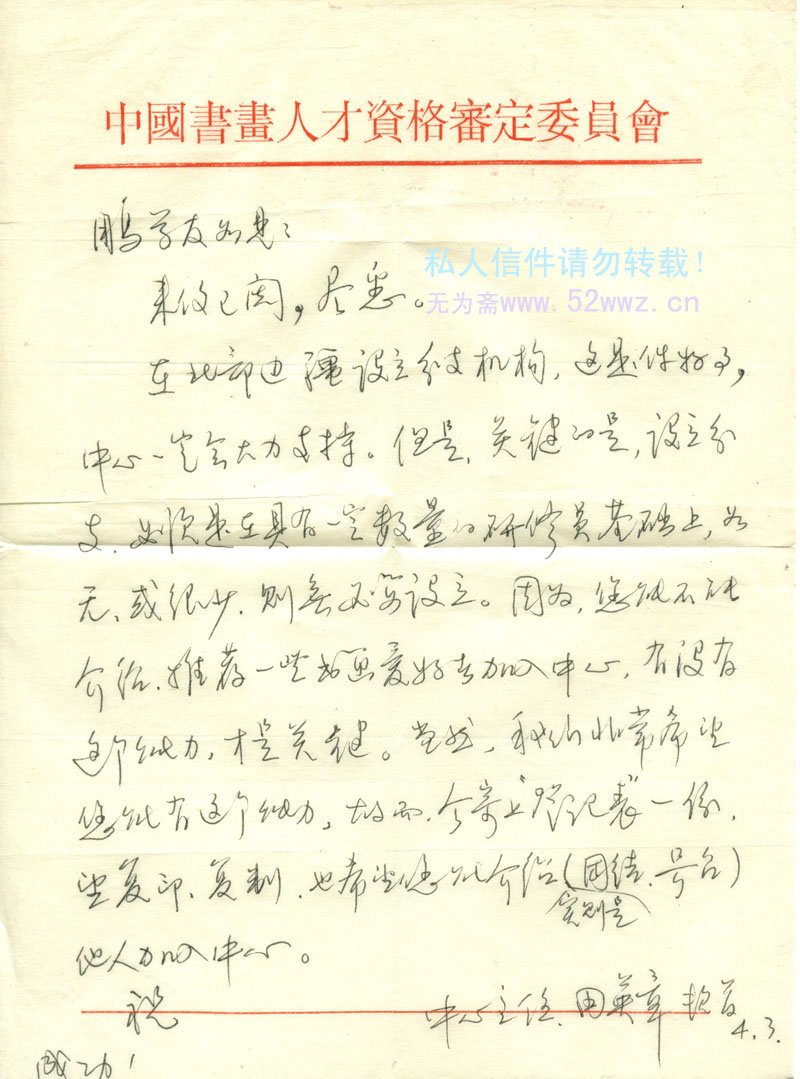 中國書畫人才資格審定委員會
鹏学友如见：
私人信件请勿转载！
来信已阅，尽悉。
无为斋www.52wwz.cn
在北部边疆设立分支机构，这是件好事，
中心一定会大力支持。但是，关键的是，设立分
支，必须是在具有一定数量的研修员基础上，如
无、或很少，则无必要设立。因为，您能不能
介绍、推荐一些书画爱好者加入中心，有没有
这个能力，才是关键。当然，我们非常希望
您能有这个能力，故而，今寄上"登记表"一份，
望复印、复制，也希望您能介绍（团结、号召）
实则是
他人加入中心。
祝
中心主任 周英章 顿首
4.3.
成功！